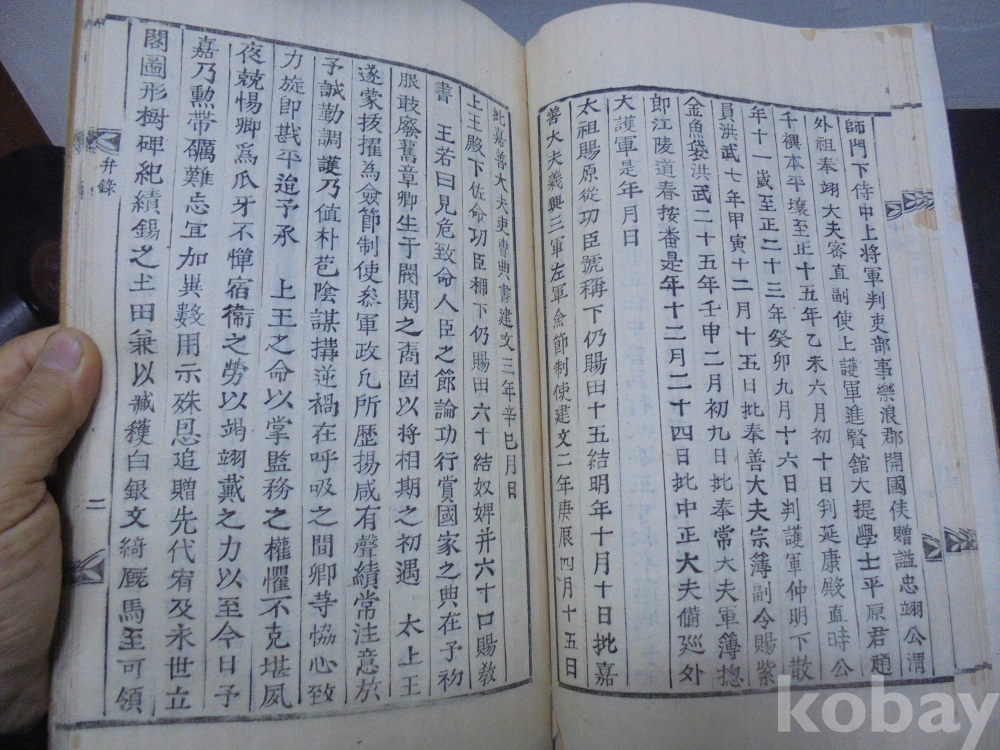 師門下侍中上将軍判吏部事樂浪郡開國侯贈謚忠翊公渭
外祖奉翊大夫密直副使上護軍進賢舘大提學士平原君趙
千禩本平壤至正十五年乙未六月初十日判延康殿直時公
年十一歲至正二十三年癸卯九月十六日判護軍仲明下散
員洪武七年甲寅十二月十五日批奉善大夫宗簿副令賜紫
金魚袋洪武二十五年壬申二月初九日批奉常大夫軍簿捴
郎江陵道春按番是年十二月二十四日批中正大夫備廵外
大護軍是年月日
太祖賜原從功臣號稱下仍賜田十五結明年十月十日批嘉
善大夫義興三軍左軍僉節制使建文二年庚辰四月十五日
批嘉善大夫吏曹典書建文三年辛巳月日
上王殿下佐命功臣稱下仍賜田六十結奴婢并六十口賜教
書 王若曰見危致命人臣之節論功行賞國家之典在予初
服敢廢舊章卿生于閥閱之裔固以将相期之初遇 太上王
遂蒙拔擢爲僉節制使叅軍政凡所歷揚咸有聲績常注意於
予誠勤調護乃值朴苞陰謀搆逆禍在呼吸之間卿等恊心致
力旋即戡平迨予承 上王之命以掌監務之權懼不克堪夙
夜兢惕卿爲爪牙不憚宿衞之勞以竭翊戴之力以至今日予
嘉乃勲帶礪難忘冝加異數用示殊恩追贈先代宥及永世立
閣圖形樹碑紀績錫之土田兼以臧穫白銀文綺厩馬至可領
弁錄
二
kobay